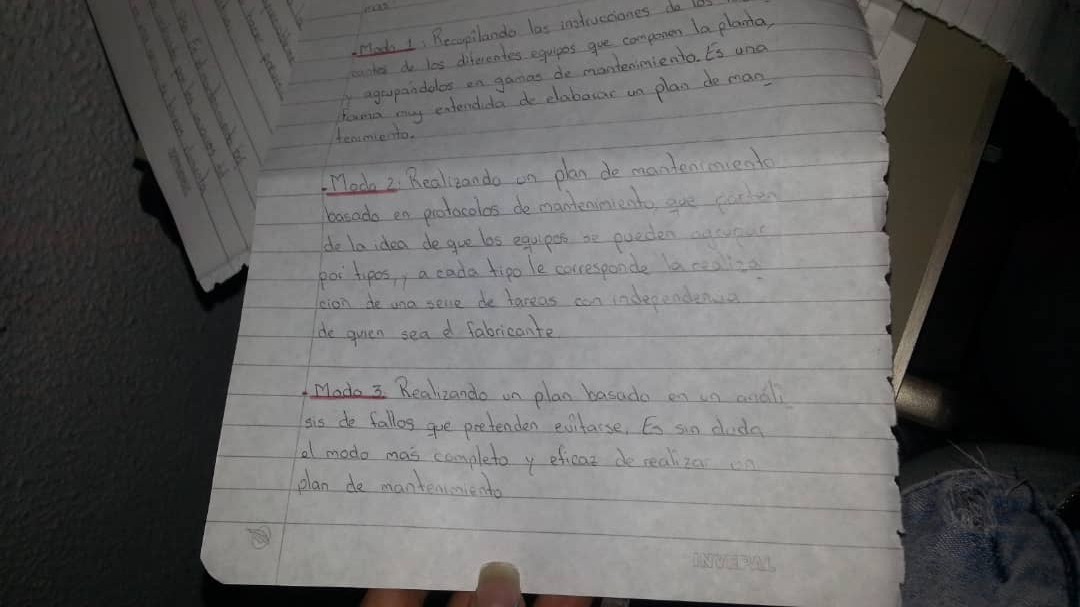 mas
- Modo 1: Recopilando las instrucciones de los
cantes de los diferentes equipos que componen la planta,
y agrupándolos en gamas de mantenimiento. Es una
forma muy extendida de elaborar un plan de man_
tenimiento.
- Modo 2. Realizando un plan de mantenimiento
basado en protocolos de mantenimiento, que parten
de la idea de que los equipos se pueden agrupar
por tipos, y a cada tipo le corresponde la realiza_
cion de una serie de tareas con independencia
de quien sea el fabricante
- Modo 3. Realizando un plan basado en un análi_
sis de fallos que pretenden evitarse. Es sin duda
el modo más completo y eficaz de realizar un
plan de mantenimiento
INVEPAL